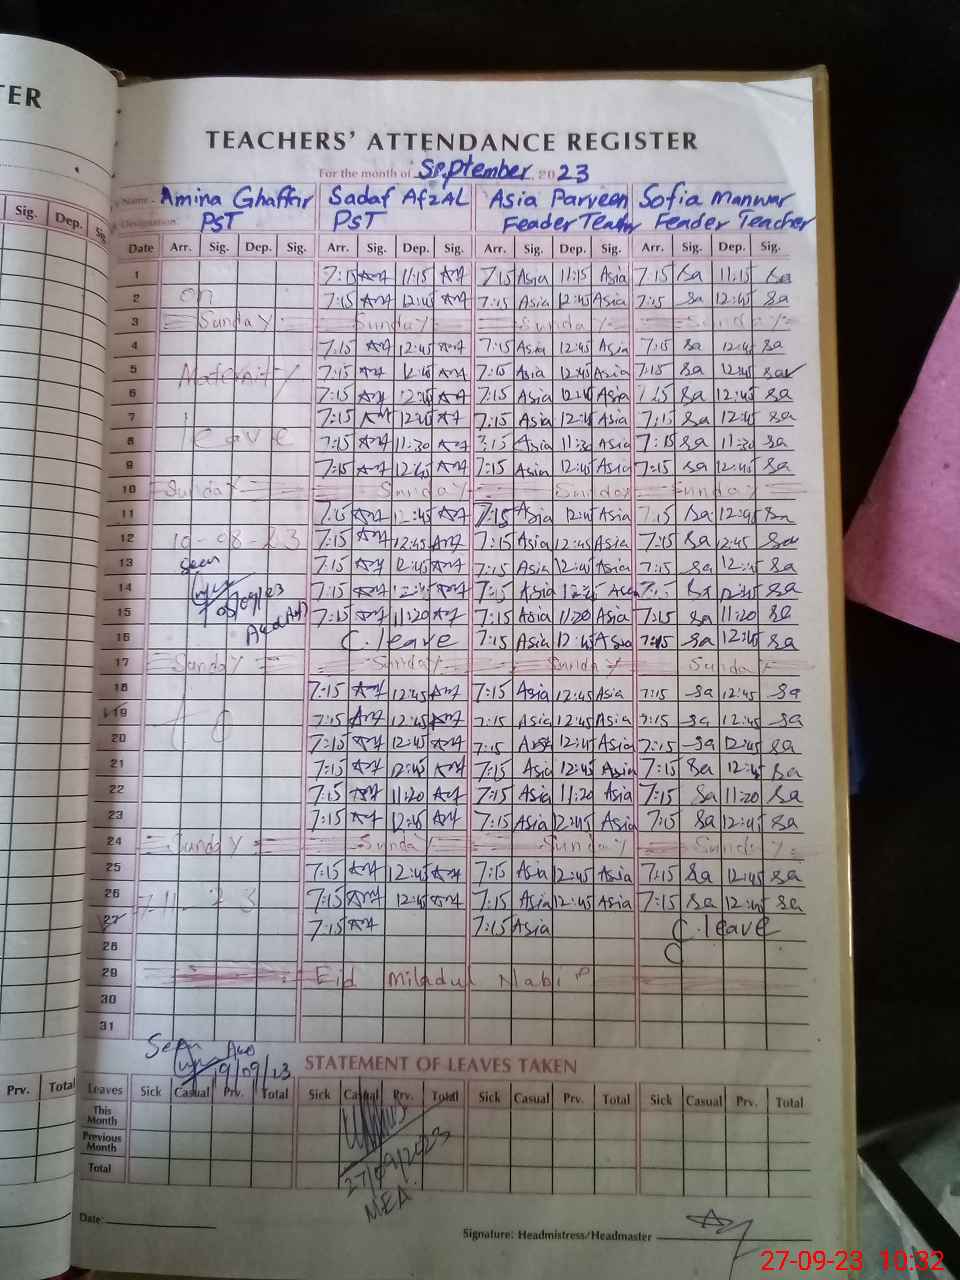 TER
TEACHERS' ATTENDANCE REGISTER
For the month of September 2023
Name. Amina Ghaffir Sadaf AfzAL Asia Parveen Sofia Manwar
Designation PST PST Feader Teacher
Sig. Dep. Date Arr. Sig. Dep. Sig. Arr. Sig. Dep. Sig. Arr. Sig. Dep. Sig. Arr. Sig. Dep. Sig.
1 7:15 11:15 7:15 Asia 11:15 Asia 7:15 Sa 11:15 Sa
2 on 7:15 12:45 7:15 Asia 12:45 Asia 7:15 Sa 12:45 Sa
3 Sunday Sunday Sunday Sunday
4 7:15 12:45 7:15 Asia 12:45 Asia 7:15 Sa 12:45 Sa
5 Maternity 7:15 12:45 7:15 Asia 12:45 Asia 7:15 Sa 12:45 Sa
6 7:15 12:45 7:15 Asia 12:45 Asia 7:15 Sa 12:45 Sa
7 7:15 12:45 7:15 Asia 12:45 Asia 7:15 Sa 12:45 Sa
8 leave 7:15 11:30 Asia 11:30 Asia 7:15 Sa 11:30 Sa
9 7:15 12:45 7:15 Asia 12:45 Asia 7:15 Sa 12:45 Sa
10 Sunday Sunday Sunday Sunday
11 7:15 12:45 7:15 Asia 12:45 Asia 7:15 Sa 12:45 Sa
12 10-08-23 7:15 12:45 7:15 Asia 12:45 Asia 7:15 Sa 12:45 Sa
13 Seen 7:15 12:45 7:15 Asia 12:45 Asia 7:15 Sa 12:45 Sa
14 7:15 12:45 7:15 Asia 12:45 Sa 12:45 Sa
15 7:15 11:20 7:15 Asia 11:20 Asia 7:15 Sa 11:20 Sa
16 C.leave 7:15 Asia 12:45 Asia 7:15 Sa 12:45 Sa
17 Sunday Sunday Sunday Sunday
18 7:15 12:45 7:15 Asia 12:45 Asia 7:15 Sa 12:45 Sa
19 to 7:15 12:45 7:15 Asia 12:45 Asia 7:15 Sa 12:45 Sa
20 7:15 12:45 7:15 Asia 12:45 Asia 7:15 Sa 12:45 Sa
21 7:15 12:45 7:15 Asia 12:45 Asia 7:15 Sa 12:45 Sa
22 7:15 11:20 7:15 Asia 11:20 Asia 7:15 Sa 11:20 Sa
23 7:15 12:45 7:15 Asia 12:45 Asia 7:15 Sa 12:45 Sa
24 Sunday Sunday Sunday Sunday
25 7:15 12:45 7:15 Asia 12:45 Asia 7:15 Sa 12:45 Sa
26 7-11-23 7:15 12:45 7:15 Asia 12:45 Asia 7:15 Sa 12:45 Sa
27 7:15 7:15 Asia C.leave
28
29 Eid Miladul Nabi
30
31
Seen 19/09/23
STATEMENT OF LEAVES TAKEN
Prv. Total Leaves Sick Casual Prv. Total Sick Casual Prv. Total Sick Casual Prv. Total Sick Casual Prv. Total
This Month
Previous Month
Total
27/09/2023
MEA
Date:
Signature: Headmistress/Headmaster
27-09-23 10:32